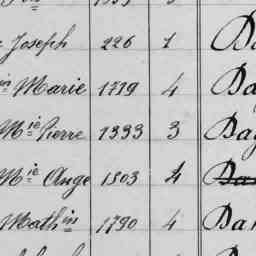 Joseph 226 1 Da
in Marie 1719 4 Da
Mie Pierre 1333 3 Day
Mie Ange 1803 4
Mathin 1790 4 Dar